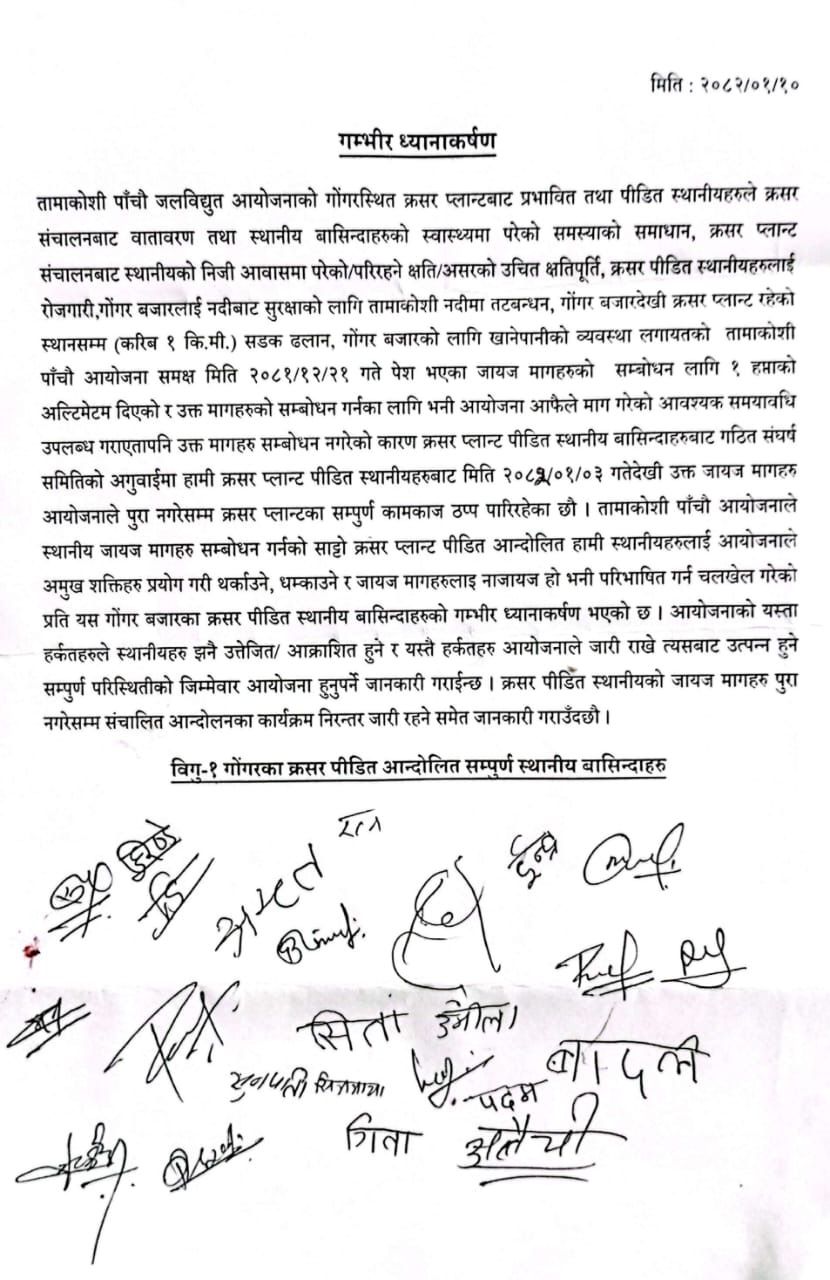 मिति : २०८२/०१/१०
गम्भीर ध्यानाकर्षण
तामाकोशी पाँचौ जलविद्युत आयोजनाको गोंगरस्थित क्रसर प्लान्टबाट प्रभावित तथा पीडित स्थानीयहरुले क्रसर
संचालनबाट वातावरण तथा स्थानीय बासिन्दाहरुको स्वास्थ्यमा परेको समस्याको समाधान, क्रसर प्लान्ट
संचालनबाट स्थानीयको निजी आवासमा परेको/परिरहने क्षति/असरको उचित क्षतिपूर्ति, क्रसर पीडित स्थानीयहरुलाई
रोजगारी,गोंगर बजारलाई नदीबाट सुरक्षाको लागि तामाकोशी नदीमा तटबन्धन, गोंगर बजारदेखी क्रसर प्लान्ट रहेको
स्थानसम्म (करिब १ कि.मी.) सडक ढलान, गोंगर बजारको लागि खानेपानीको व्यवस्था लगायतको तामाकोशी
पाँचौ आयोजना समक्ष मिति २०८१/१२/२१ गते पेश भएका जायज मागहरुको सम्बोधन लागि १ हप्ताको
अल्टिमेटम दिएको र उक्त मागहरुको सम्बोधन गर्नका लागि भनी आयोजना आफैले माग गरेको आवश्यक समयावधि
उपलब्ध गराएतापनि उक्त मागहरु सम्बोधन नगरेको कारण क्रसर प्लान्ट पीडित स्थानीय बासिन्दाहरुबाट गठित संघर्ष
समितिको अगुवाईमा हामी क्रसर प्लान्ट पीडित स्थानीयहरुबाट मिति २०८२/०१/०३ गतेदेखी उक्त जायज मागहरु
आयोजनाले पुरा नगरेसम्म क्रसर प्लान्टका सम्पुर्ण कामकाज ठप्प पारिरहेका छौ । तामाकोशी पाँचौ आयोजनाले
स्थानीय जायज मागहरु सम्बोधन गर्नको साट्टो क्रसर प्लान्ट पीडित आन्दोलित हामी स्थानीयहरुलाई आयोजनाले
अमुख शक्तिहरु प्रयोग गरी थर्काउने, धम्काउने र जायज मागहरुलाइ नाजायज हो भनी परिभाषित गर्न चलखेल गरेको
प्रति यस गोंगर बजारका क्रसर पीडित स्थानीय बासिन्दाहरुको गम्भीर ध्यानाकर्षण भएको छ । आयोजनाको यस्ता
हर्कतहरुले स्थानीयहरु झनै उत्तेजित/ आक्राशित हुने र यस्तै हर्कतहरु आयोजनाले जारी राखे त्यसबाट उत्पन्न हुने
सम्पुर्ण परिस्थितीको जिम्मेवार आयोजना हुनुपर्ने जानकारी गराईन्छ । क्रसर पीडित स्थानीयको जायज मागहरु पुरा
नगरेसम्म संचालित आन्दोलनका कार्यक्रम निरन्तर जारी रहने समेत जानकारी गराउँदछौ ।
विगु-१ गोंगरका क्रसर पीडित आन्दोलित सम्पुर्ण स्थानीय बासिन्दाहरु
सिता उर्मीला
बादली
पदम
गिता अलैची